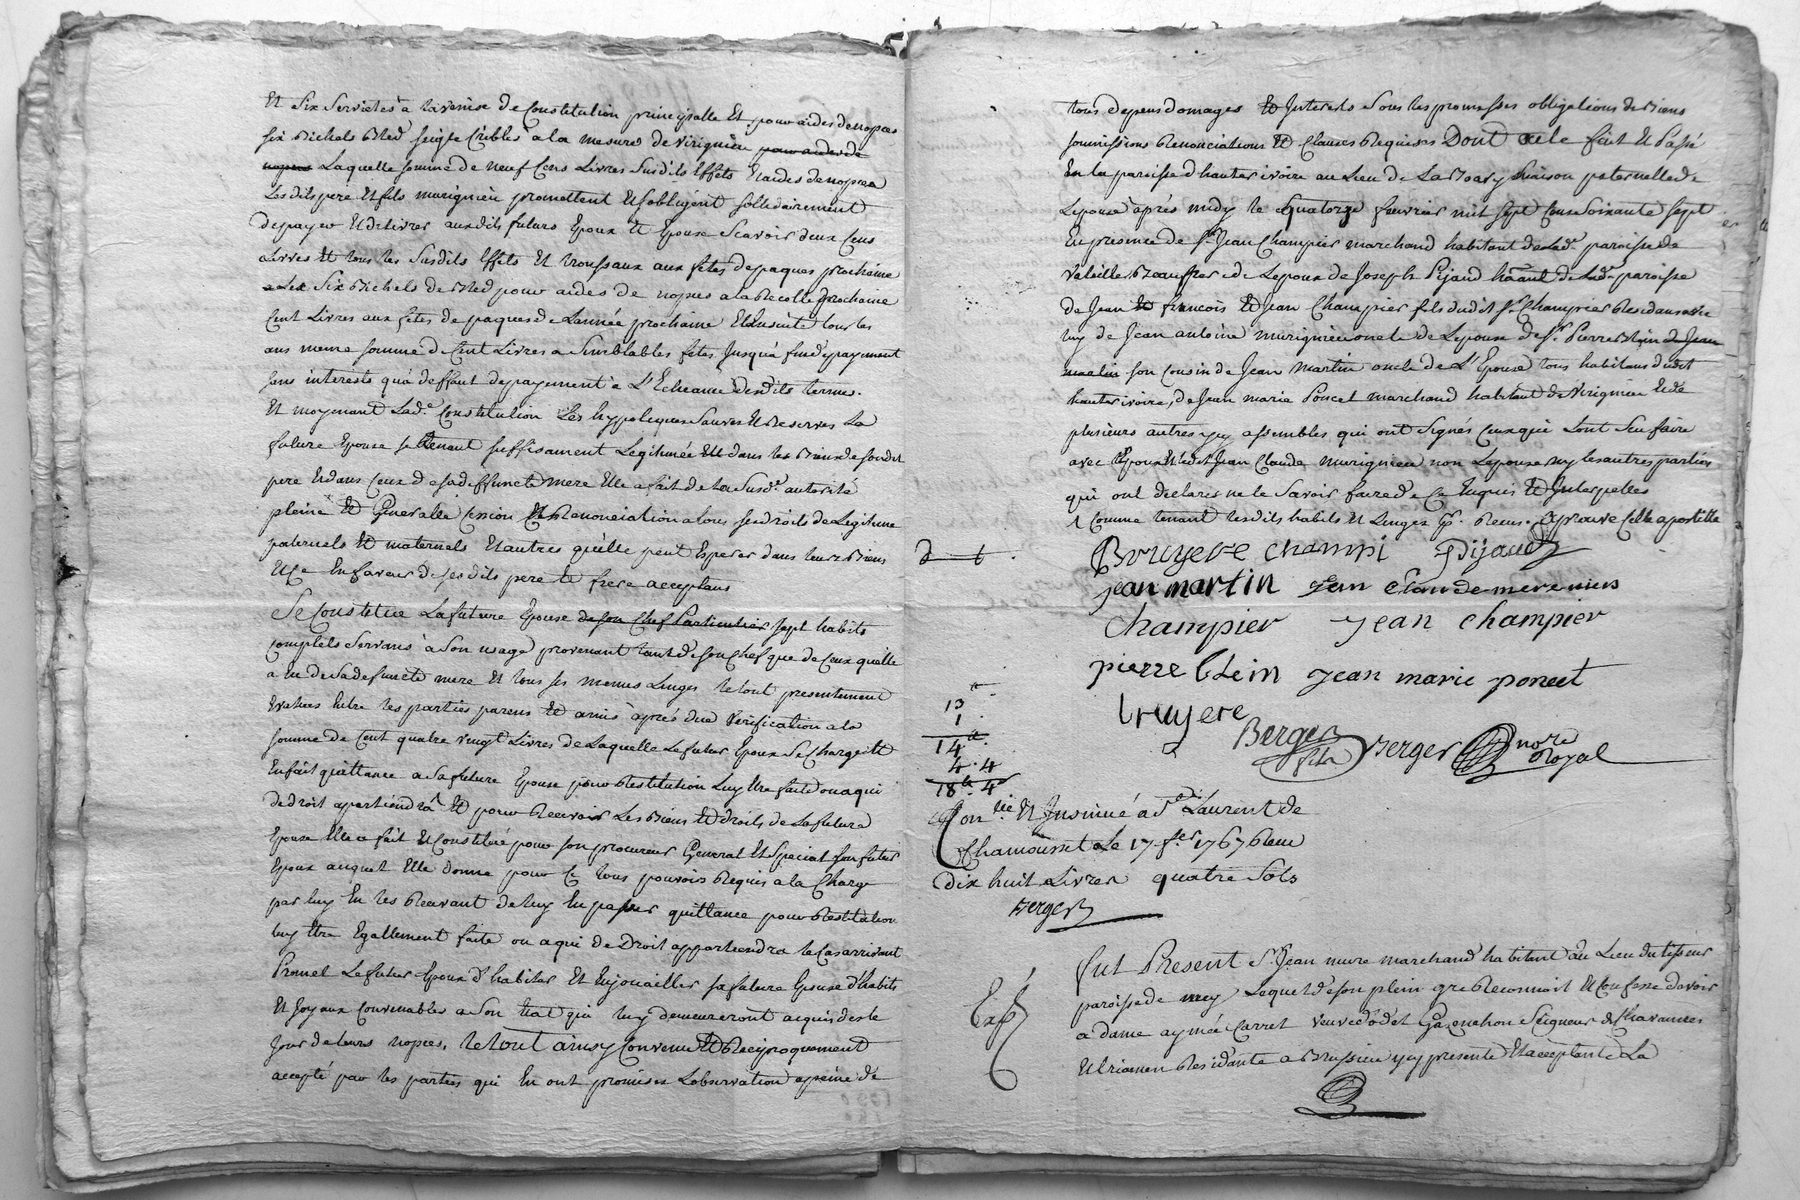 Et Six Serviettes a la venise de Constitution principalle Et pour aides de nopces
six Bichets Bled seigle Cribles a la mesure de Virignieu pour aides de
nopces Laquelle somme de neuf Cens Livres Susdits Effets Et aides de nopces
Lesdits pere et fils murignieu promettent Et sobligent sollidairement
de payer Et delivrer auxdits futurs Epoux Et Epouse Scavoir deux Cens
Livres Et tous les Susdits Effets Et troussaux aux fetes de paques prochaine
Les Six Bichets de Bled pour aides de nopces a la Recolte prochaine
Cent Livres aux fetes de paques de Lannée prochaine Et Ensuite tous les
ans meme somme de Cent Livres a Semblables fetes Jusqu'a fin de payement
sans interets qu'a deffaut de payement a L'Echeance desdits termes.
Et moyenant Lad.e Constitution Les hyppoteques Sauves Et Reserves La
future Epouse se tenant suffisament Legitimée Et dans les Biens de son dit
pere Et dans Ceux de sa deffuncte mere Elle a fait de la Susd.e autorité
pleine Et Generalle Cession Et Renonciation a tous ses droits de Legitime
paternels Et maternels Et autres qu'elle peut Esperer dans leurs Biens
Et Ce En faveur de ses dits pere Et frere acceptans
Se Constitue La future Epouse de son Chef Particulier sept habits
complets Servans à Son usage provenant tant de son Chef que de Ceux quelle
a Eu de Sa defuncte mere Et tous ses menus Linges le tout presentement
Evalues Entre les parties parens Et amis apres due Verification a la
somme de Cent quatre vingt Livres de Laquelle Le futur Epoux Se Charge Et
En fait quittance a Sa future Epouse pour Restitution Luy Etre faite ou a qui
de droit apartiendra Et pour Recevoir Les Biens Et droits de La future
Epouse Elle a fait Et Constitué pour son procureur General Et Special son futur
Epoux auquel Elle donne pour Ce tous pouvoirs Requis a la Charge
par luy En les Recevant de luy En passer quittance pour Restitution
luy Etre Egallement faite ou a qui de Droit appartiendra le Cas arrivant
Promet Le futur Epoux d'habiller Et Enjouailler sa future Epouse d'habits
Et Joyaux Convenables a Son Etat qui luy demeureront acquis des le
Jour de leurs nopces, le tout ainsy Convenu Et Reciproquement
accepté par les parties qui En ont promises L'observation a peine de
tous depens domages Et Interets Sous les promesses obligations de Biens
soumissions Renonciations Et Clauses Requises Dont acte fait Et Passé
En la paroisse d'hauterivoire au Lieu de La maison paternelle de
Lepouse après midy le quatorze fevrier mil sept Cens Soixante sept
En presence de S.r Jean Champier marchand habitant de Lad.e paroisse de
Valeille Beaufrere de Lepoux de Joseph Pijaud habitant de lad.e paroisse
de Jean Et francois Et Jean Champier fils dudit S.r Champier Residans avec
luy de Jean antoine murignieu oncle de Lepoux de S.r Pierre Blein de Jean
martin son Cousin de Jean Martin oncle de L'Epouse tous habitans dudit
hauterivoire, de Jean Marie Poncet marchand habitant de Virignieu Et de
plusieurs autres icy assembles qui ont Signés Ceux qui Sont Seu faire
avec L'Epoux Et ledit Jean Claude murignieu non Lepouse ny les autres parties
qui ont declares ne le Savoir faire de Ce Enquis Et Interpelles
Comme tenant lesdits habits Et Linges Reçus. Aprouve Cette apostille
Brouyere champi Pijaud
jean martin jean claude merenieu
champier jean champier
pierre blein jean marie poncet
bruyere
Berger fils Berger nore Royal
13
1
14
4 . 4
18 4
Con.lé Et Insinué a S.t Laurent de
Chamousset Le 17 f.er 1767 Reçu
Dix huit Livres quatre Sols
Berger
Exp
fut Present S.r Jean mure marchand habitant au Lieu du tisseur
paroisse de mey Lequel de son plein gré Reconnoit Et Confesse devoir
a dame aymée Carret veuve d'odet Gazanchon Seigneur de Chavannes
Et Residante a Brussieu icy presente Et acceptante La